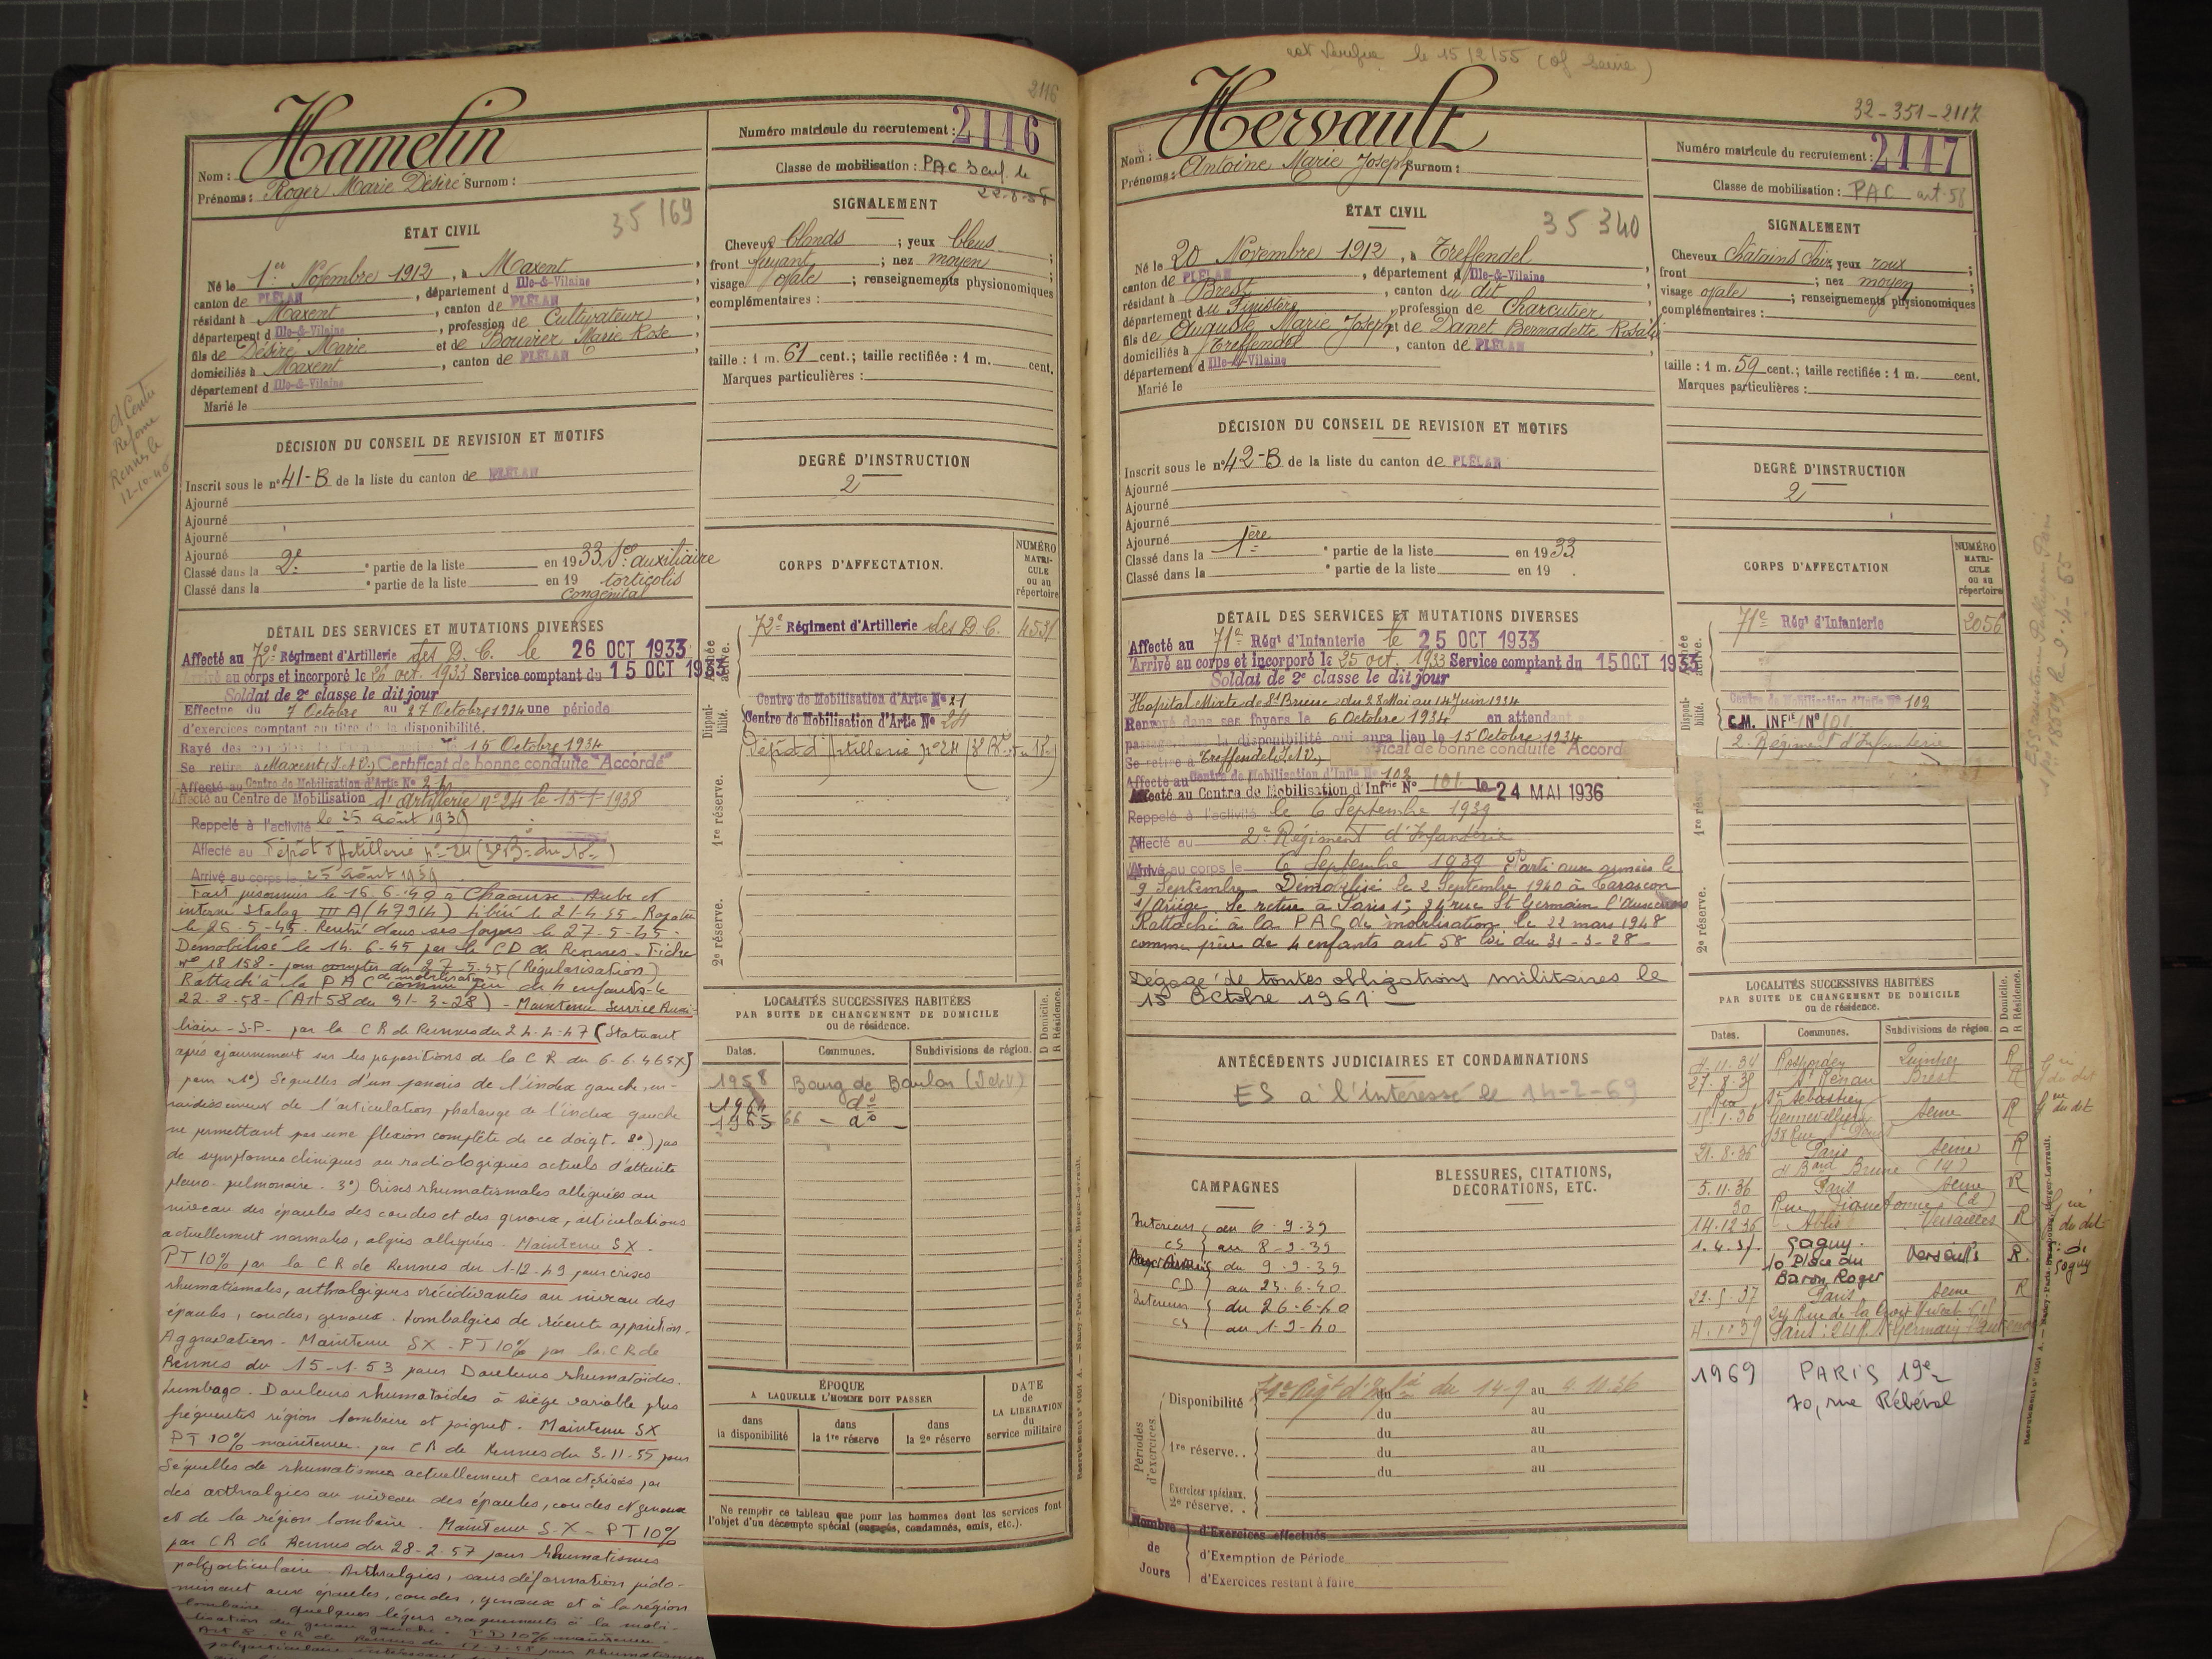 2116
Hamelin
Nom :
Prénoms : Roger Marie Désiré Surnom :
Numéro matricule du recrutement : 2116
Classe de mobilisation : PAC
35 169
ÉTAT CIVIL
Né le 1er Novembre 1912, à Maxent
canton de PLÉLAN, département d Ille-&-Vilaine
résidant à Maxent, canton de PLÉLAN
département d Ille-&-Vilaine, profession de Cultivateur
fils de Désiré Marie et de Bouvier Marie Rose
domiciliés à Maxent, canton de PLÉLAN
département d Ille-&-Vilaine
Marié le
SIGNALEMENT
Cheveux blonds ; yeux bleus ;
front fuyant ; nez moyen ;
visage ovale ; renseignements physionomiques
complémentaires :
taille : 1 m. 61 cent.; taille rectifiée : 1 m. cent.
Marques particulières :
Réforme
Rennes le
12-10-46
DÉCISION DU CONSEIL DE REVISION ET MOTIFS
Inscrit sous le n° 41-B de la liste du canton de PLÉLAN
Ajourné
Ajourné
Ajourné
Ajourné
Classé dans la 2e partie de la liste en 1933 Sce auxiliaire
Classé dans la e partie de la liste en 19 torticolis
congénital
DEGRÉ D'INSTRUCTION
2
CORPS D'AFFECTATION.
NUMÉRO MATRICULE ou au répertoire
Armée active.
72e Régiment d'Artillerie des D. C. 4531
Disponibilité.
Centre de Mobilisation d'Artie N° 21
Centre de Mobilisation d'Artie N° 24
Dépôt d'Artillerie n° 24
1re réserve.
2e réserve.
DÉTAIL DES SERVICES ET MUTATIONS DIVERSES
Affecté au 72e Régiment d'Artillerie des D. C. le 26 OCT 1933
Arrivé au corps et incorporé le 26 oct. 1933 Service comptant du 15 OCT 1933
Soldat de 2e classe le dit jour
Effectue du 7 Octobre au 27 Octobre 1934 une période
d'exercices comptant au titre de la disponibilité.
Rayé des 15 Octobre 1934
Se retire à Maxent (I.&V.) Certificat de bonne conduite "Accordé"
Affecté au Centre de Mobilisation d'Artie N°
Affecté au Centre de Mobilisation d'Artillerie n° 24 le 15-1-1938
Rappelé à l'activité le 25 Août 1939
Affecté au Dépôt d'Artillerie n° 24
Arrivé au corps le 25 Août 1939
Fait prisonnier le 16-6-40 à Chaource Aube et
interné Stalag III A (47914) Libéré le 21-4-45 - Rapatrié
le 26-5-45. Rentré dans ses foyers le 27-5-45 -
Démobilisé le 14-6-45 par le CD de Rennes - Fiche
n° 18 158 - pour compter du 27-5-45 (Régularisation)
Rattaché à la PAC de mobilisation comme père de 4 enfants le
22-8-58 - (Art 58 du 31-3-28) - Maintenu Service Auxi-
liaire - S.P - par la CR de Rennes du 24-4-47 (Statuant
après ajournement sur les propositions de la CR du 6-6-46 SX)
pour 1°) Séquelles d'un panaris de l'index gauche, en-
raidissement de l'articulation phalange de l'index gauche
ne permettant pas une flexion complète de ce doigt. 2°) pas
de symptomes cliniques ou radiologiques actuels d'atteinte
pleuro-pulmonaire. 3°) Crises rhumatismales alléguées au
niveau des épaules des coudes et des genoux, articulations
actuellement normales, algies alléguées. Maintenu SX.
PT 10% par la CR de Rennes du 1-12-49 pour crises
rhumatismales, arthralgiques récidivantes au niveau des
épaules, coudes, genoux. Lombalgies de récente apparition.
Aggravation - Maintenu SX - PT 10% par la CR de
Rennes du 15-1-53 pour Douleurs rhumatoïdes.
Lumbago. Douleurs rhumatoïdes à siège variable plus
fréquentes région lombaire et poignet. Maintenu SX
PT 10% maintenu par CR de Rennes du 3-11-55 pour
Séquelles de rhumatismes actuellement caractérisés par
des arthralgies au niveau des épaules, coudes et genoux
et de la région lombaire. Maintenu S.X - PT 10%
par CR de Rennes du 28-2-57 pour rhumatismes
polyarticulaire. Arthralgies, sans déformation prédo-
minant aux épaules, coudes, genoux et à la région
lombaire. Quelques légers craquements à la mobi-
lisation du genou gauche. PD 10% maintenu
LOCALITÉS SUCCESSIVES HABITÉES
PAR SUITE DE CHANGEMENT DE DOMICILE
ou de résidence.
D Domicile. R Résidence.
Dates. Communes. Subdivisions de région.
1958 Bourg de Baulon (I et V)
1964 d°
1965 66 - d° -
ÉPOQUE
A LAQUELLE L'HOMME DOIT PASSER
dans la disponibilité
dans la 1re réserve
dans la 2e réserve
DATE de LA LIBÉRATION du service militaire
Ne remplir ce tableau que pour les hommes dont les services font
l'objet d'un décompte spécial (engagés, condamnés, omis, etc.).
le 15/2/55 (of Seine)
32-351-2117
Hervault
Nom :
Prénoms : Antoine Marie Joseph Surnom :
Numéro matricule du recrutement : 2117
Classe de mobilisation : PAC art. 58
35 340
ÉTAT CIVIL
Né le 20 Novembre 1912, à Treffendel
canton de PLÉLAN, département d Ille-&-Vilaine
résidant à Brest, canton du dit
département du Finistère, profession de Charcutier
fils de Auguste Marie Joseph et de Danet Bernadette Rosalie
domiciliés à Treffendel, canton de PLÉLAN
département d Ille-&-Vilaine
Marié le
SIGNALEMENT
Cheveux Chatains Clair yeux roux ;
front ; nez moyen ;
visage ovale ; renseignements physionomiques
complémentaires :
taille : 1 m. 59 cent.; taille rectifiée : 1 m. cent.
Marques particulières :
DÉCISION DU CONSEIL DE REVISION ET MOTIFS
Inscrit sous le n° 42-B de la liste du canton de PLÉLAN
Ajourné
Ajourné
Ajourné
Ajourné
Classé dans la 1ère partie de la liste en 1933
Classé dans la e partie de la liste en 19 .
DEGRÉ D'INSTRUCTION
2
CORPS D'AFFECTATION
NUMÉRO MATRICULE ou au répertoire
Armée active.
71e Régt d'Infanterie 2056
Disponibilité.
Centre de Mobilisation d'Infie N° 102
C.M. INFie N° 101
2e Régiment d'Infanterie
1re réserve
2e réserve.
DÉTAIL DES SERVICES ET MUTATIONS DIVERSES
Affecté au 71e Régt d'Infanterie le 25 OCT 1933
Arrivé au corps et incorporé le 25 oct. 1933 Service comptant du 15 OCT 1933
Soldat de 2e classe le dit jour
Hopital Mixte de St Brieuc du 28 Mai au 14 Juin 1934
Renvoyé dans ses foyers le 6 Octobre 1934 en attendant
la disponibilité qui aura lieu le 15 Octobre 1934
Se retire à Treffendel (I.&V.) Certificat de bonne conduite Accord
Affecté au Centre de Mobilisation d'Infie N° 102
Affecté au Centre de Mobilisation d'Infrie N° 101 le 24 MAI 1936
Rappelé à l'activité le 6 Septembre 1939
Affecté au 2e Régiment d'Infanterie
Arrivé au corps le 6 Septembre 1939 Parti aux armées le
9 Septembre Démobilisé le 2 Septembre 1940 à Tarascon
s/Ariège Se retire à Paris 1; 24 rue St Germain l'Auxerrois
Rattaché à la PAC de mobilisation le 22 mars 1948
comme père de 4 enfants art 58 loi du 31-3-28
Dégagé de toutes obligations militaires le
15 Octobre 1961
ANTÉCÉDENTS JUDICIAIRES ET CONDAMNATIONS
ES à l'intéressé le 14-2-69
CAMPAGNES
Intérieur du 6-9-39
CS au 8-9-39
Aux Armées du 9-9-39
CD au 25-6-40
Intérieur du 26-6-40
CS au 1-9-40
BLESSURES, CITATIONS,
DÉCORATIONS, ETC.
Périodes d'exercices
Disponibilité 71e Régt d'Infie du 14-9 au
du au
1re réserve. . du au
du au
du au
Exercices spéciaux.
2e réserve. .
Nombre de Jours
d'Exercices effectués
d'Exemption de Période
d'Exercices restant à faire
LOCALITÉS SUCCESSIVES HABITÉES
PAR SUITE DE CHANGEMENT DE DOMICILE
ou de résidence.
D Domicile. R Résidence.
Dates. Communes. Subdivisions de région.
4.11.34 Rosporden Quimper R
27.8.35 St Renan Brest R
St Sébastien
15.1.36 Gennevilliers Seine R
21.8.36 Paris Seine R
4 Bard Brune (14)
5.11.36 Paris Seine R
30 Rue Tiquetonne (2)
14.12.36 Ablis Versailles R
1.4.37 Gagny. Versailles R.
10 Place du
Baron Roger
22.5.37 Paris Seine R
24 Rue de la Croix Nivert
4.1.39 Paris: 24 R. St Germain l'Auxerrois
1969 PARIS 19e
70, rue Rébéval